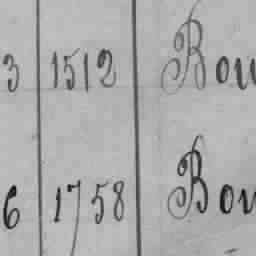 3 1512 Bou
6 1758 Bou